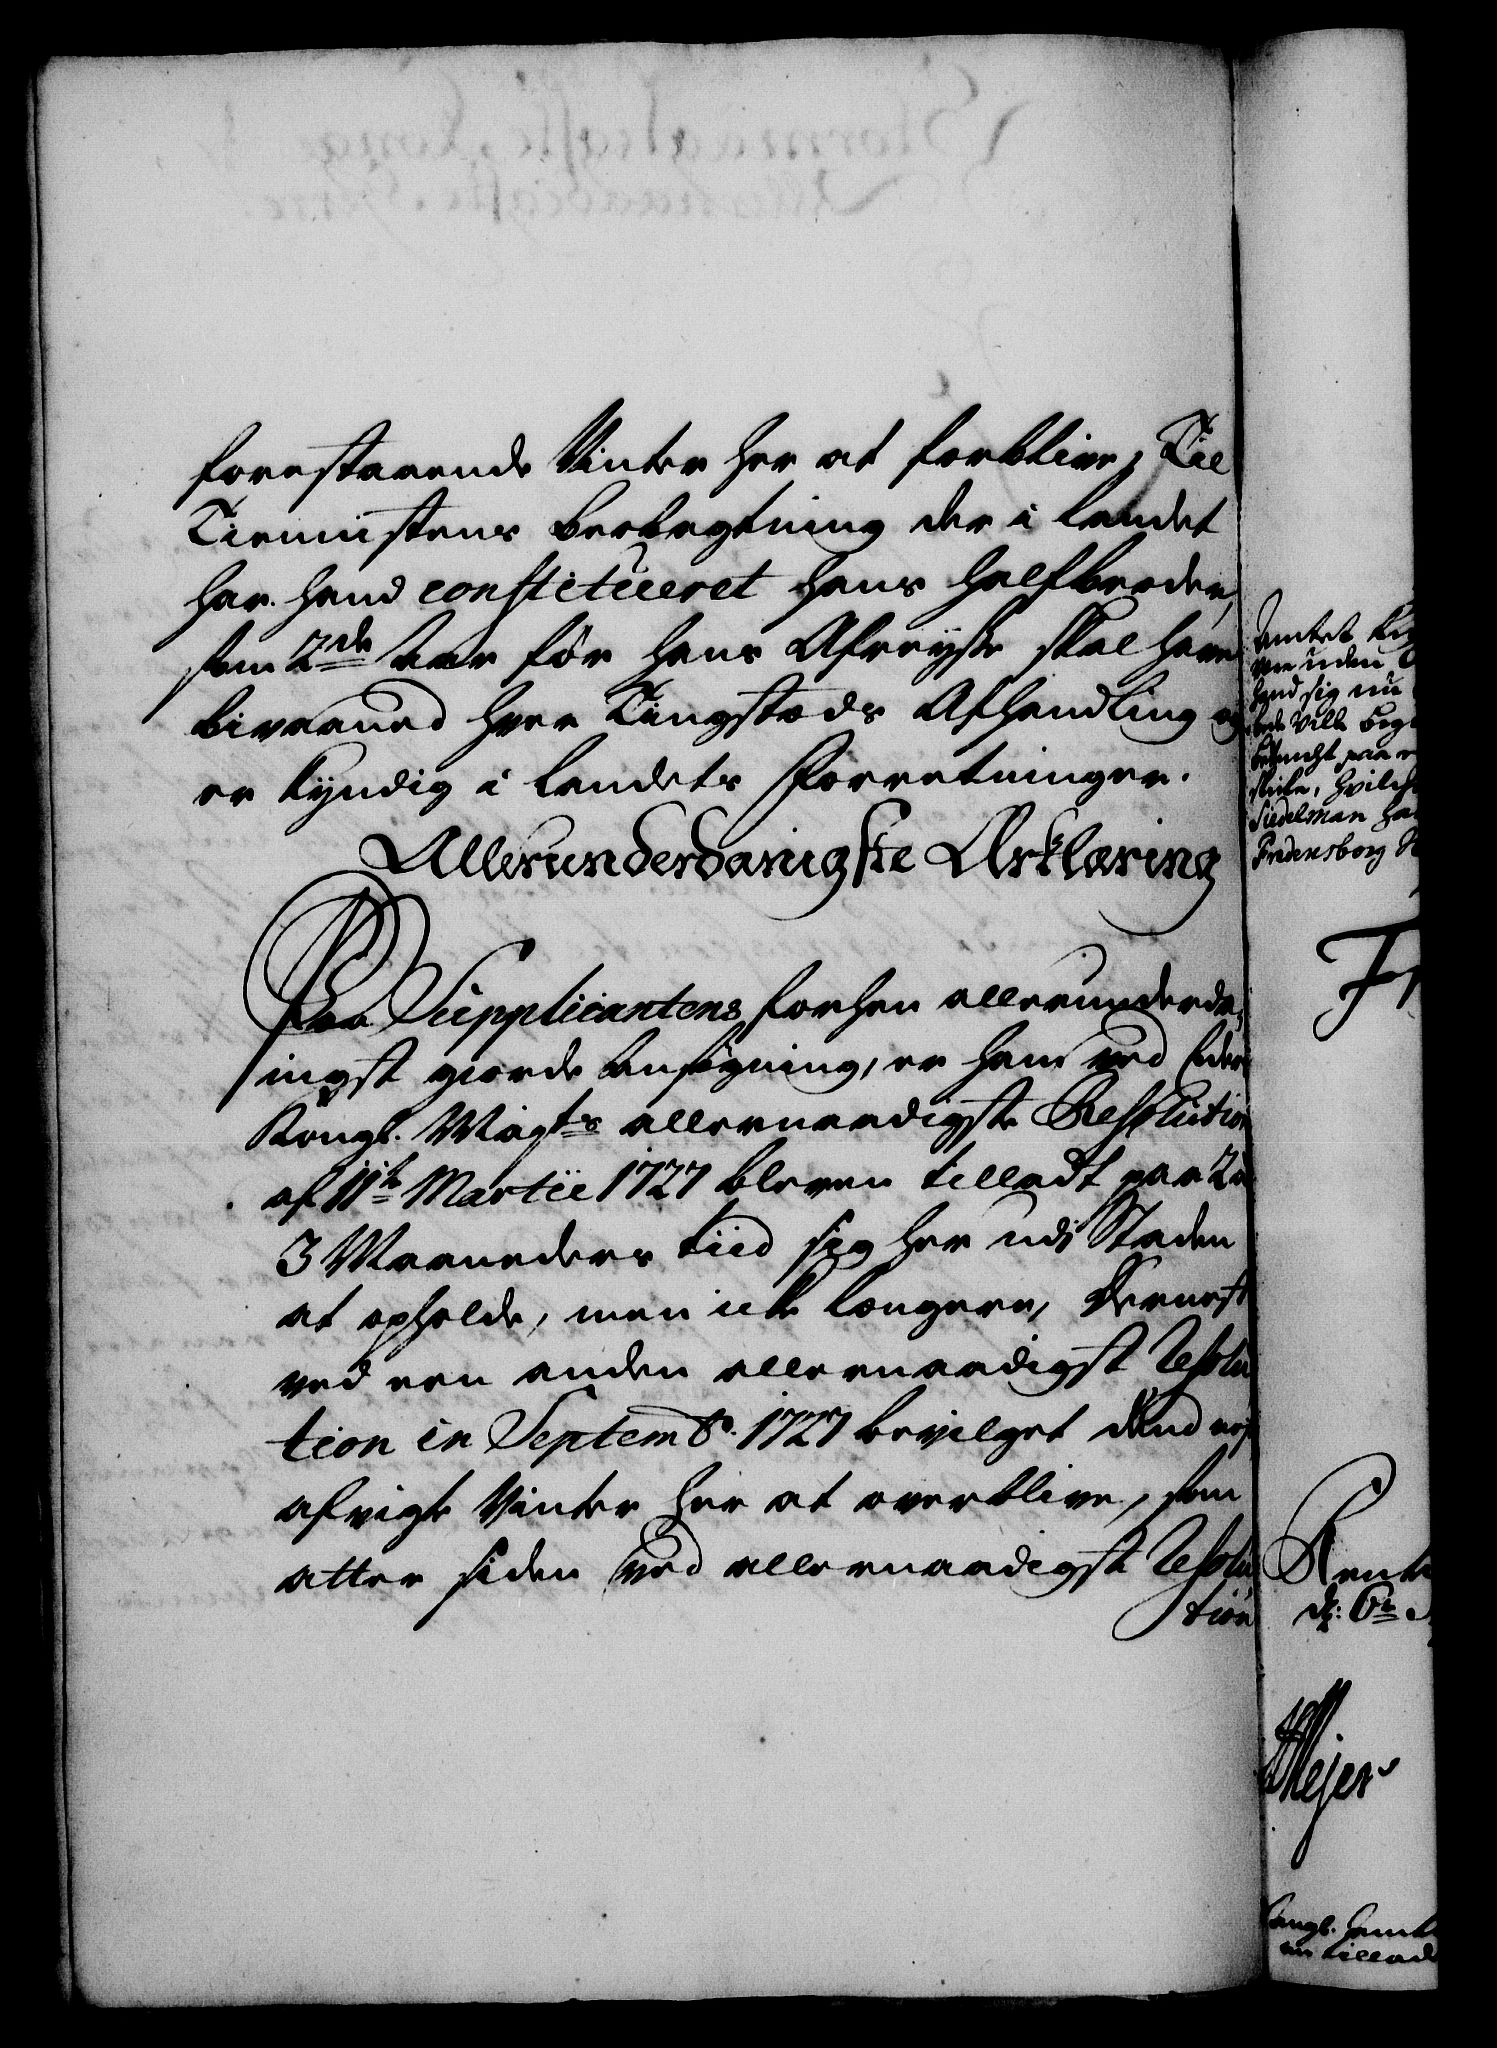 forestaaende Vinter her at forblive; Til
Tienistens beobagtning der i Landet
har hand constitueret hans Halfbroder,
som 2de Aar før hans Afreyse skal have
bivaaned hver Tingstæds Afhandling og
er kyndig i Landets Forretninger.
Allerunderdanigste Erklæring
Paa Supplicantens forhen allerunderda¬
nigst giorde Ansøgning, er hand ved Eders
Kongl. Mayts allernaadigste Resolution
af 11te Martii 1727 bleven tilladt paa 2 a
3 Maaneders tiid sig her udi Staden
at opholde, men icke længere, Dernest
ved een anden allernaadigst Resolu
tion in Septembr. 1727 bevilget dend nest
afvigte Vinter her at overblive, som
atter siden ved allernaadigst Resolu
tion
Amtet
uden
hand sig nu
Ville
paa
hvilche
Siedelman
Fredensborg
Fr
Rente
d: 6te
Mejer
Kongl.
tillad